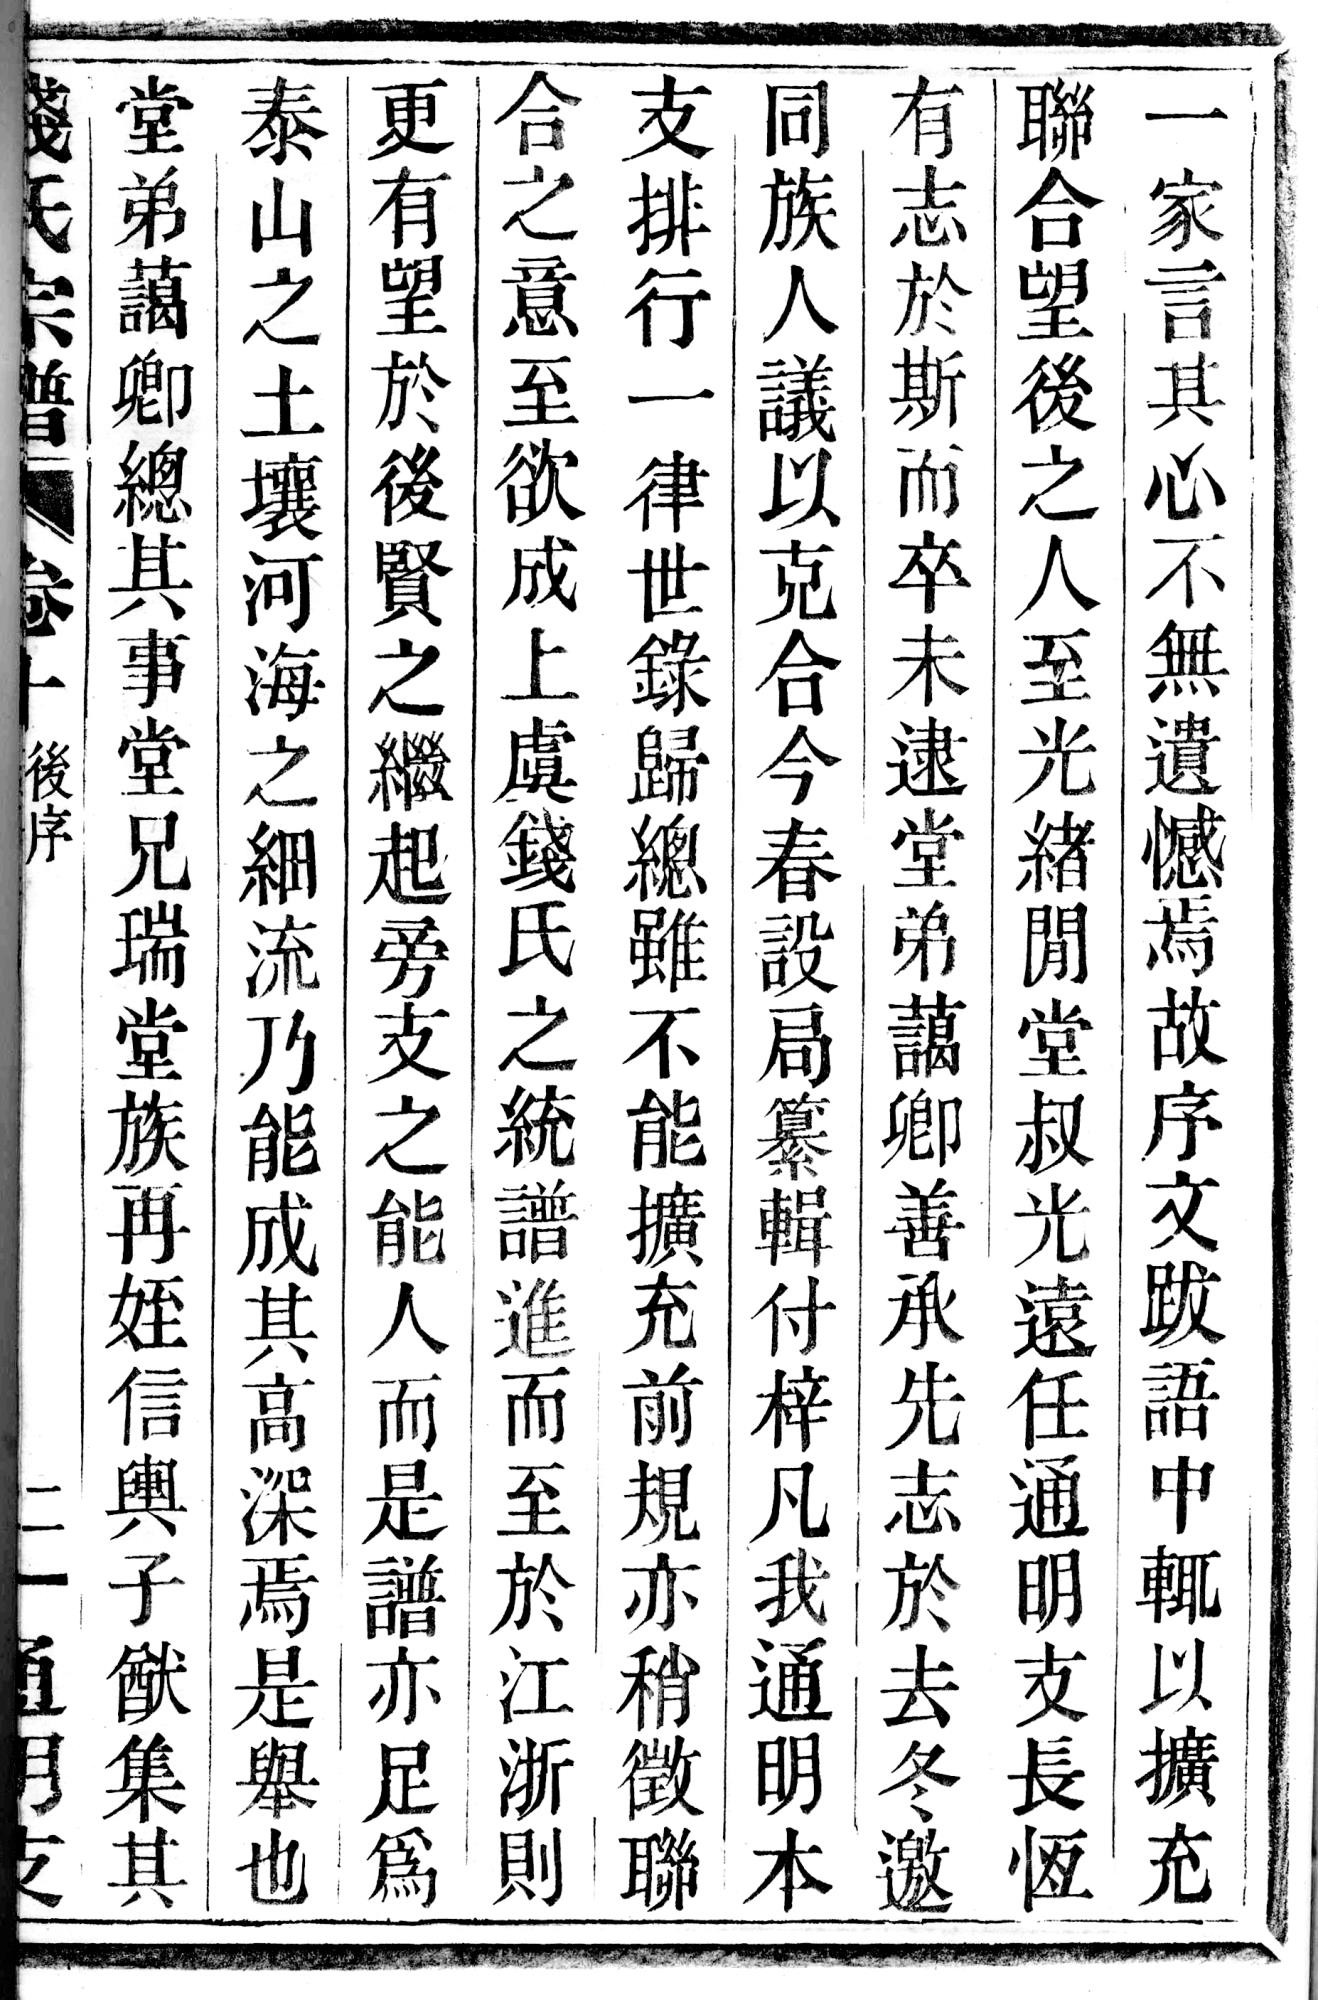 一家言其心不無遺憾焉故序文跋語中輒以擴充
聯合望後之人至光緒閒堂叔光遠任通明支長恆
有志於斯而卒未逮堂弟藹卿善承先志於去冬邀
同族人議以克合今春設局纂輯付梓凡我通明本
支排行一律世錄歸總雖不能擴充前規亦稍徵聯
合之意至欲成上虞錢氏之統譜進而至於江浙則
更有望於後賢之繼起旁支之能人而是譜亦足爲
泰山之土壤河海之細流乃能成其高深焉是舉也
堂弟藹卿總其事堂兄瑞堂族再姪信輿子猷集其
錢氏宗譜 卷十 後序 二 通明支